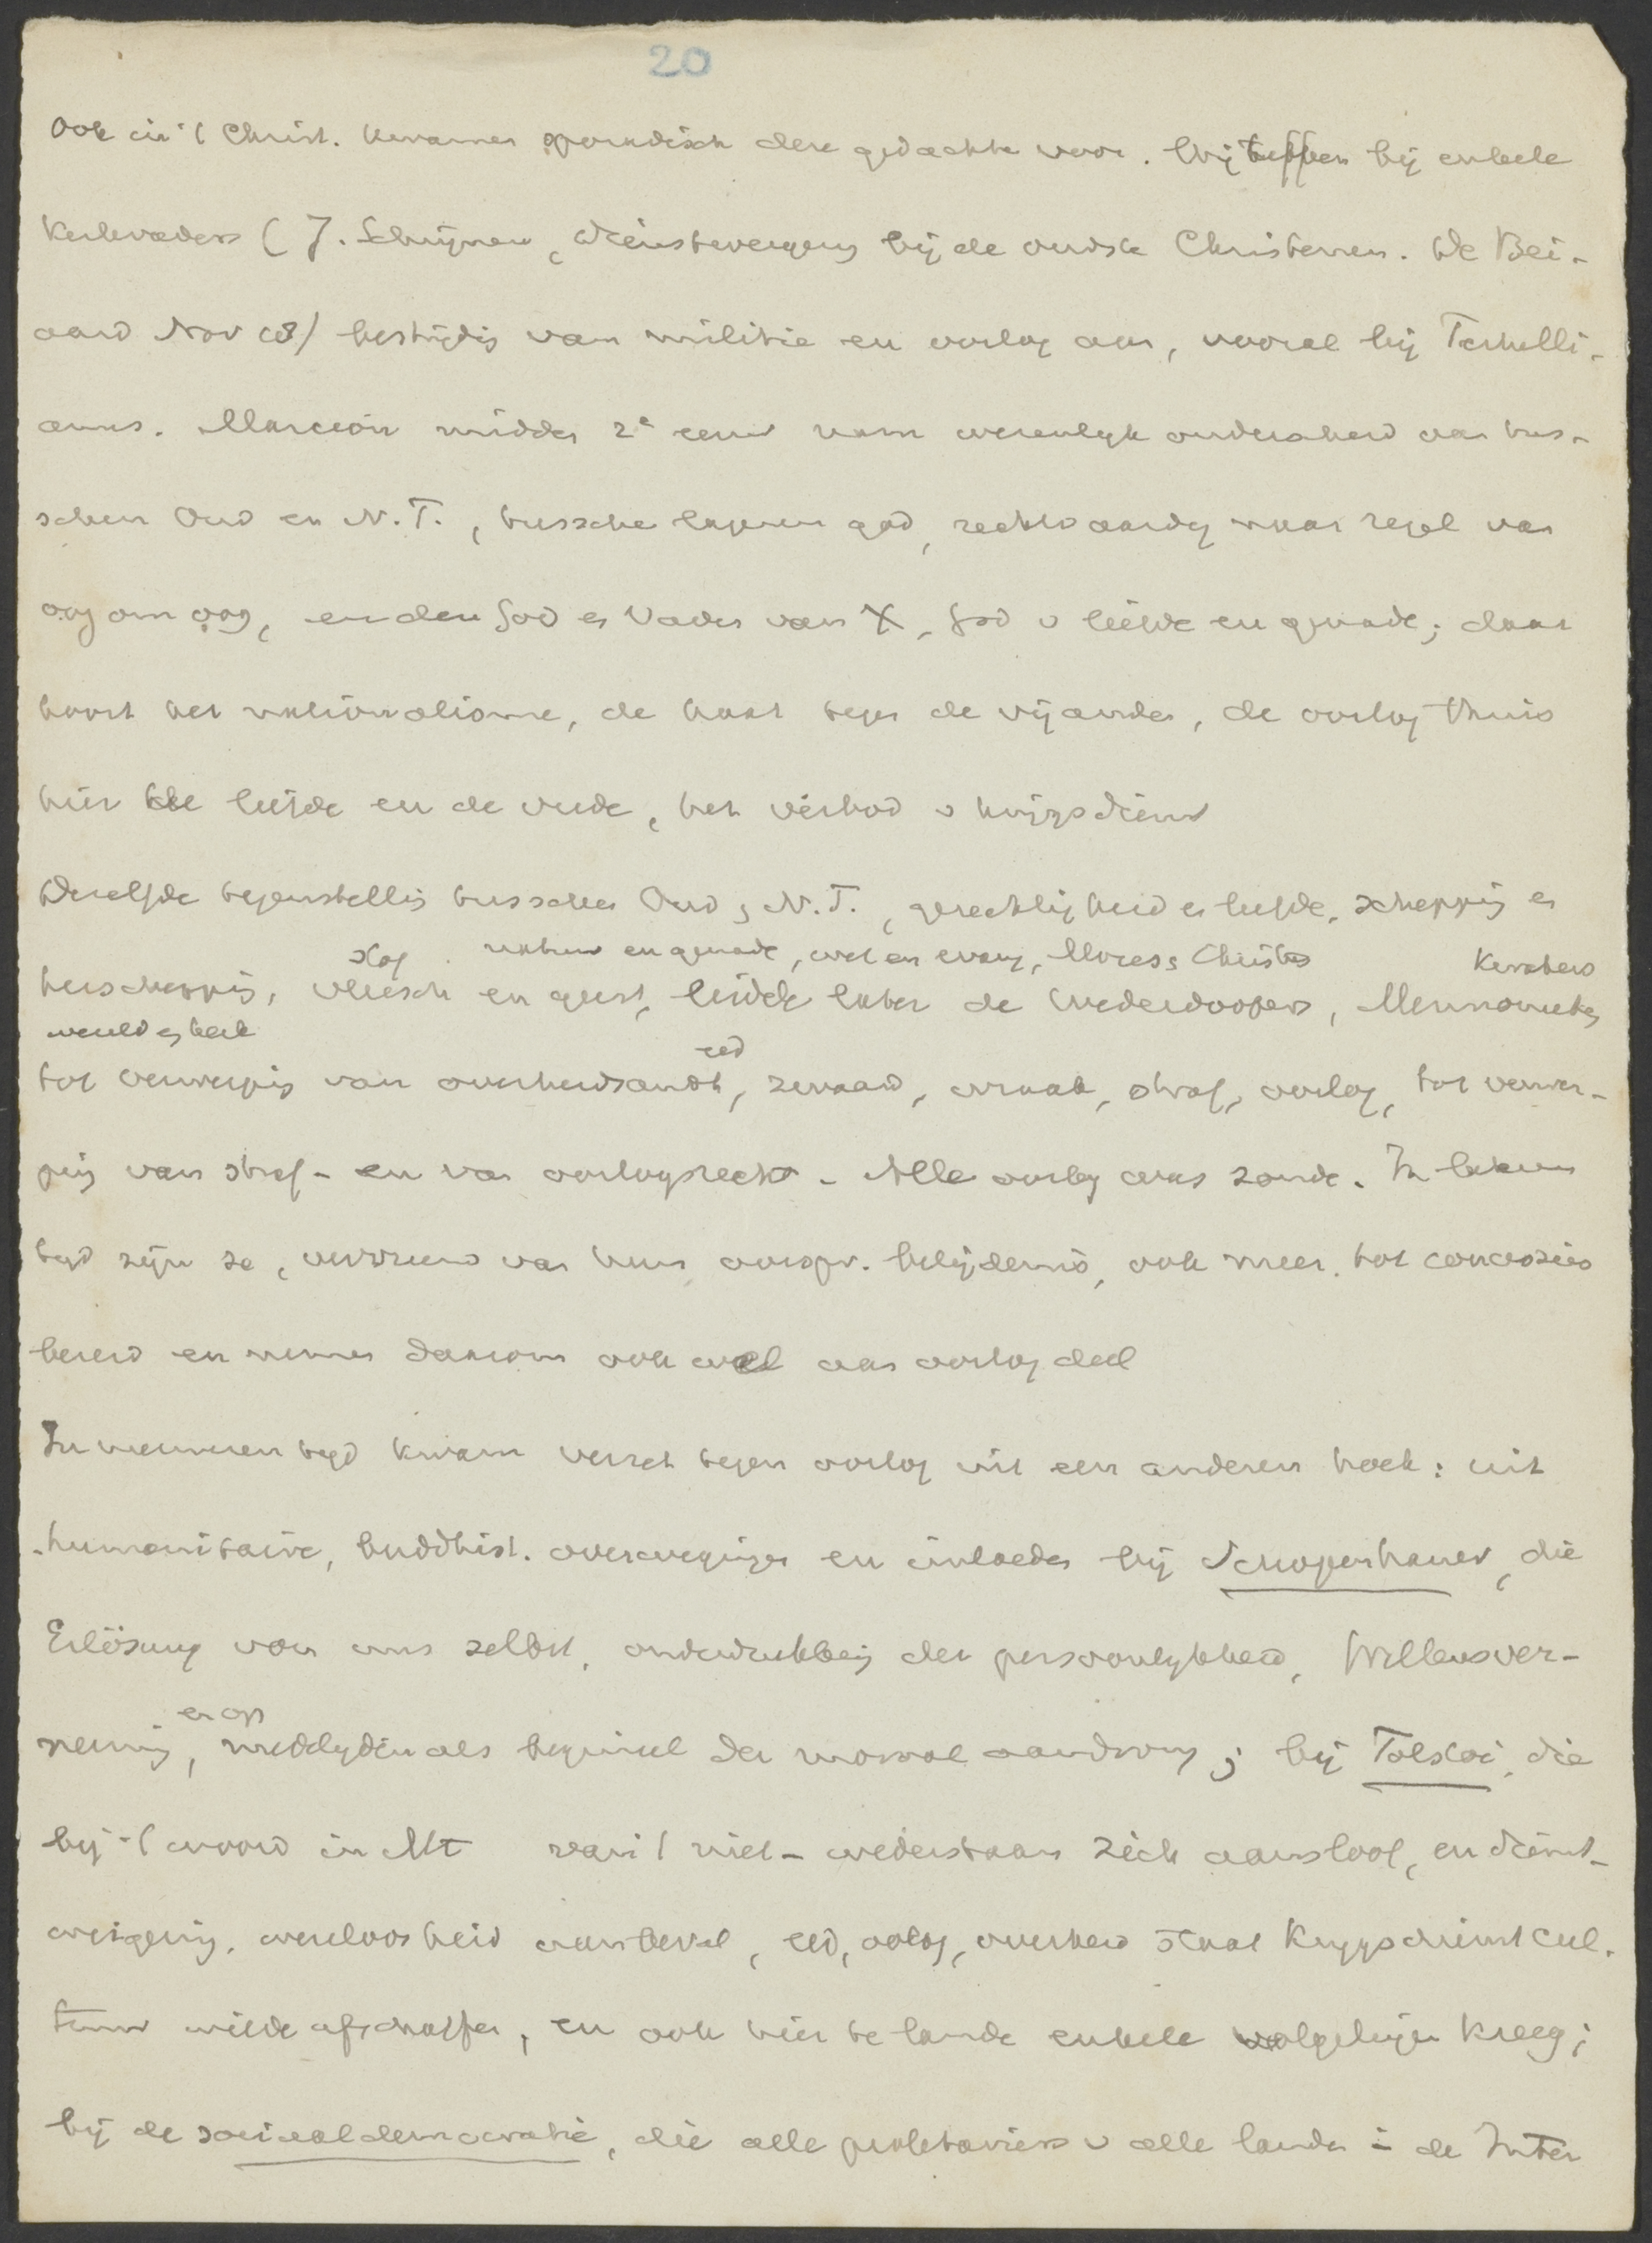 20
Ook in 't Christ. kwamen sporadisch deze gedachte voor. Wij treffen bij enkele
Kerkvaders (J. Schrijnen, Dienstweigering bij de oudste Christenen. De Bei-
aard Nov 18) bestrijding van militie en oorlog aan, vooral bij Tertulli-
anus. Marcion midden 2e eeuw nam wezenlijk onderscheid aan tus-
schen Oud en N.T., tusschen lageren god, rechtvaardig naar regel van
oog om oog, en den God en Vader van X, God v liefde en genade; daar
hoort het nationalisme, de haat tegen de vijanden, de oorlog thuis
hier de liefde en de vrede, het verbod v krijgsdienst
Dezelfde tegenstelling tusschen Oud en N.T., gerechtigheid en liefde, schepping en
stof natuur en genade, wet en evang, Mozes en Christus Kwakers
herschepping, vleesch en geest, leidde later de Wederdoopers, Mennonieten
wereld en kerk eed
tot verwerping van overheidsambt, zwaard, wraak, straf, oorlog, tot verwer-
ping van straf- en van oorlogsrecht. Alle oorlog was zonde. In lateren
tijd zijn ze, vervreemd van hun oorspr. belijdenis, ook meer tot concessies
bereid en nemen daarom ook wel aan oorlog deel
In nieuweren tijd kwam verzet tegen oorlog uit een anderen hoek: uit
humanitaire, buddhist. overwegingen en invloeden bij Schopenhauer, die
Erlösung von uns selbst, onderdrukking der persoonlijkheid, Willensver-
en op
neinig, medelijden als beginsel der moraal aandrong; bij Tolstoi, die
bij 't woord in Mt van 't niet-wederstaan zich aansloot, en dienst-
weigering, weerloosheid aanbeval, eed, oorlog, overheid staat krijgsdienst cul-
tuur wilde afschaffen, en ook hier te lande enkele volgelingen kreeg;
bij de sociaaldemocratie, die alle proletariers v alle landen in de Inter